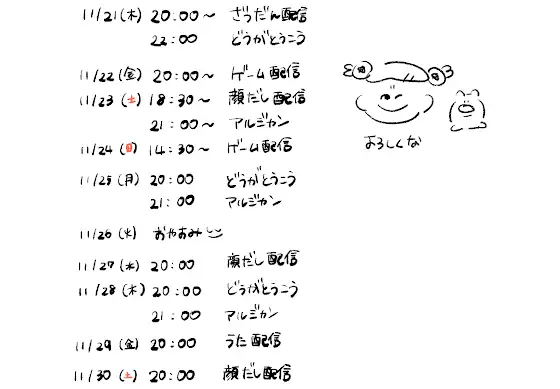 11/21(木) 20:00〜 ざつだん配信
22:00 どうがとうこう
11/22(金) 20:00〜 ゲーム配信
11/23(土) 18:30〜 顔だし配信
21:00〜 アルジカン
11/24(日) 14:30〜 ゲーム配信
11/25(月) 20:00 どうがとうこう
21:00 アルジカン
11/26(火) おやすみ
11/27(水) 20:00 顔だし配信
11/28(木) 20:00 どうがとうこう
21:00 アルジカン
11/29(金) 20:00 うた配信
11/30(土) 20:00 顔だし配信
よろしくな